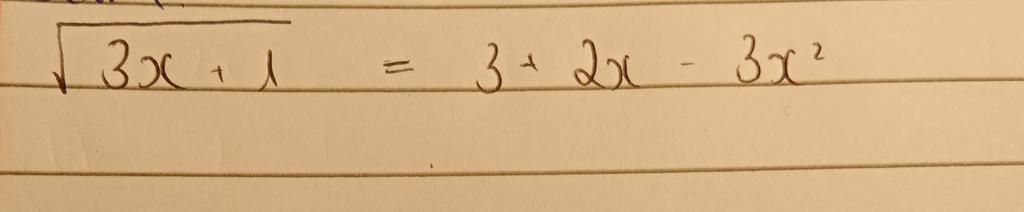 √(3x + 1) = 3 + 2x - 3x²